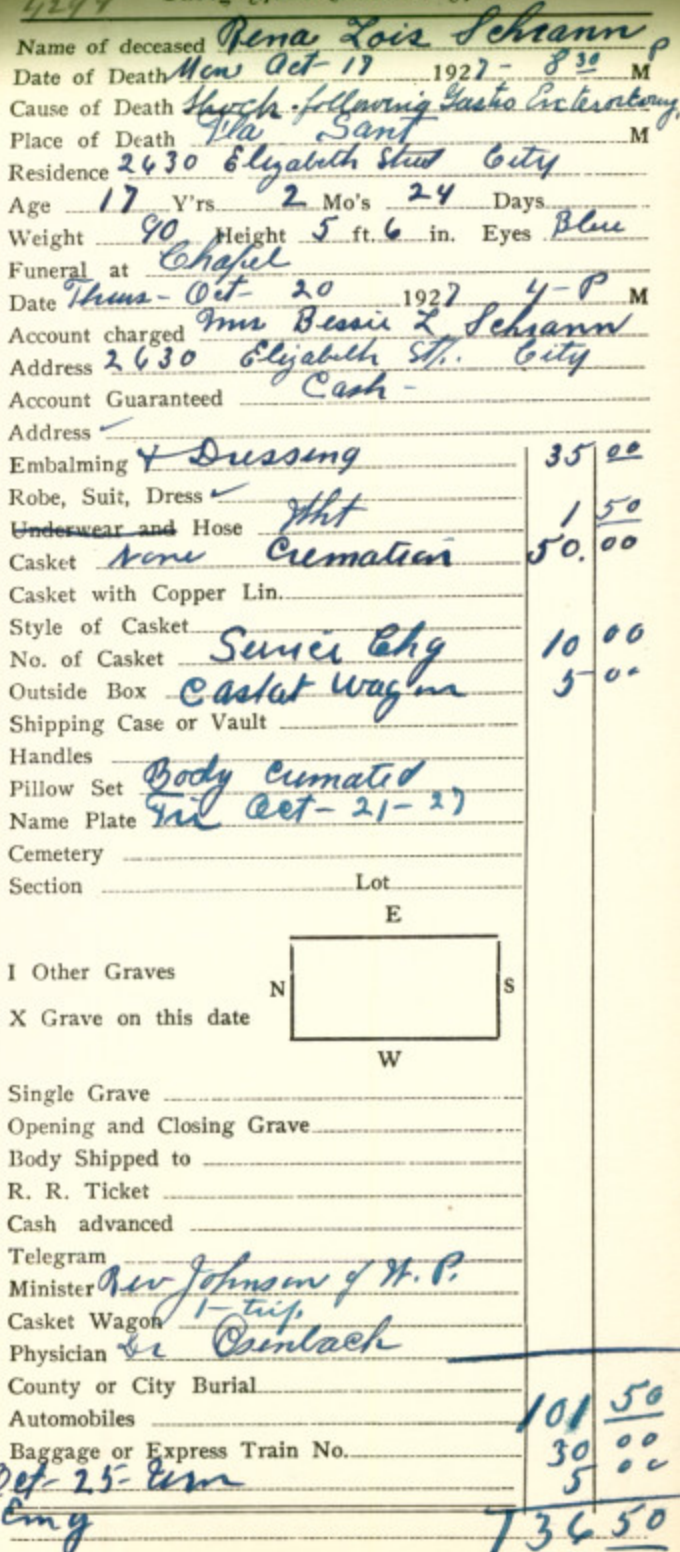 Name of deceased Rena Lois Schrann
Date of Death Mon Oct-17 1927- 8 30 P M
Cause of Death Shock following Gastro Enterostomy
Place of Death Fla Sant M
Residence 2630 Elizabeth Street City
Age 17 Y'rs 2 Mo's 24 Days
Weight 90 Height 5 ft. 6 in. Eyes Blue
Funeral at Chapel
Date Thurs-Oct-20 1927 4-P M
Account charged Mrs Bessie L Schrann
Address 2630 Elizabeth St. City
Account Guaranteed Cash-
Address ✓
Embalming & Dressing 35 00
Robe, Suit, Dress ✓
Underwear and Hose Wht 1 50
Casket None Cremation 50.00
Casket with Copper Lin.
Style of Casket
No. of Casket Service Chg 10 00
Outside Box Casket Wagon 5 00
Shipping Case or Vault
Handles
Pillow Set Body Cremated
Name Plate Fri Oct-21-27
Cemetery
Section Lot
E
I Other Graves
N S
X Grave on this date
W
Single Grave
Opening and Closing Grave
Body Shipped to
R. R. Ticket
Cash advanced
Telegram
Minister Rev Johnson of W. P.
Casket Wagon 1-trip
Physician Dr Osenbach
County or City Burial
Automobiles 101 50
Baggage or Express Train No. 30 00
Oct-25-Urn 5 00
Emy 136 50